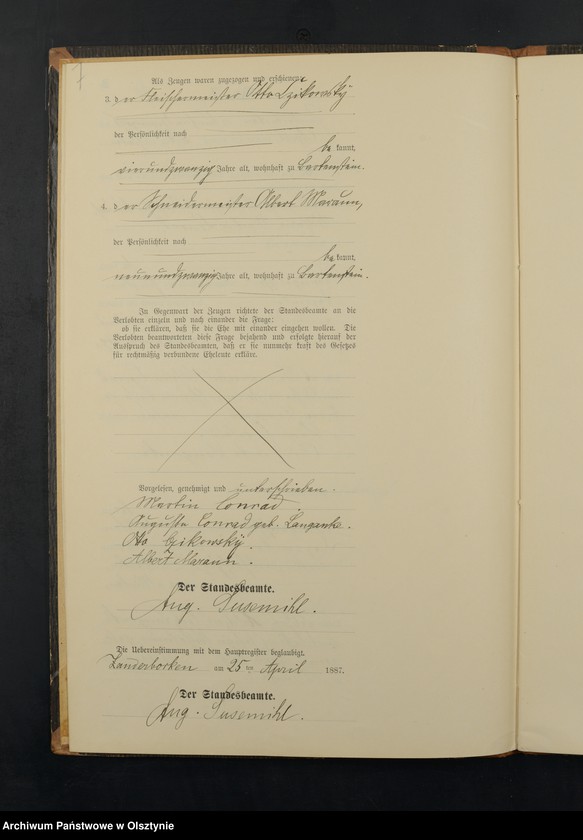 7
Als Zeugen waren zugezogen und erschienen:
3. der Fleischermeister Otto Czikowsky
der Persönlichkeit nach
be kannt,
vierundzwanzig Jahre alt, wohnhaft zu Bartenstein.
4. der Schneidermeister Albert Maraun,
der Persönlichkeit nach
be kannt,
neunundzwanzig Jahre alt, wohnhaft zu Bartenstein.
In Gegenwart der Zeugen richtete der Standesbeamte an die
Verlobten einzeln und nach einander die Frage:
ob sie erklären, daß sie die Ehe mit einander eingehen wollen. Die
Verlobten beantworteten diese Frage bejahend und erfolgte hierauf der
Ausspruch des Standesbeamten, daß er sie nunmehr kraft des Gesetzes
für rechtmäßig verbundene Eheleute erkläre.
Vorgelesen, genehmigt und unterschrieben.
Martin Conrad.
Auguste Conrad geb. Langanke.
Otto Czikowsky.
Albert Maraun.
Der Standesbeamte.
Aug. Susemihl.
Die Uebereinstimmung mit dem Hauptregister beglaubigt.
am 25ten April 1887.
Der Standesbeamte.
Aug. Susemihl.
Archiwum Państwowe w Olsztynie